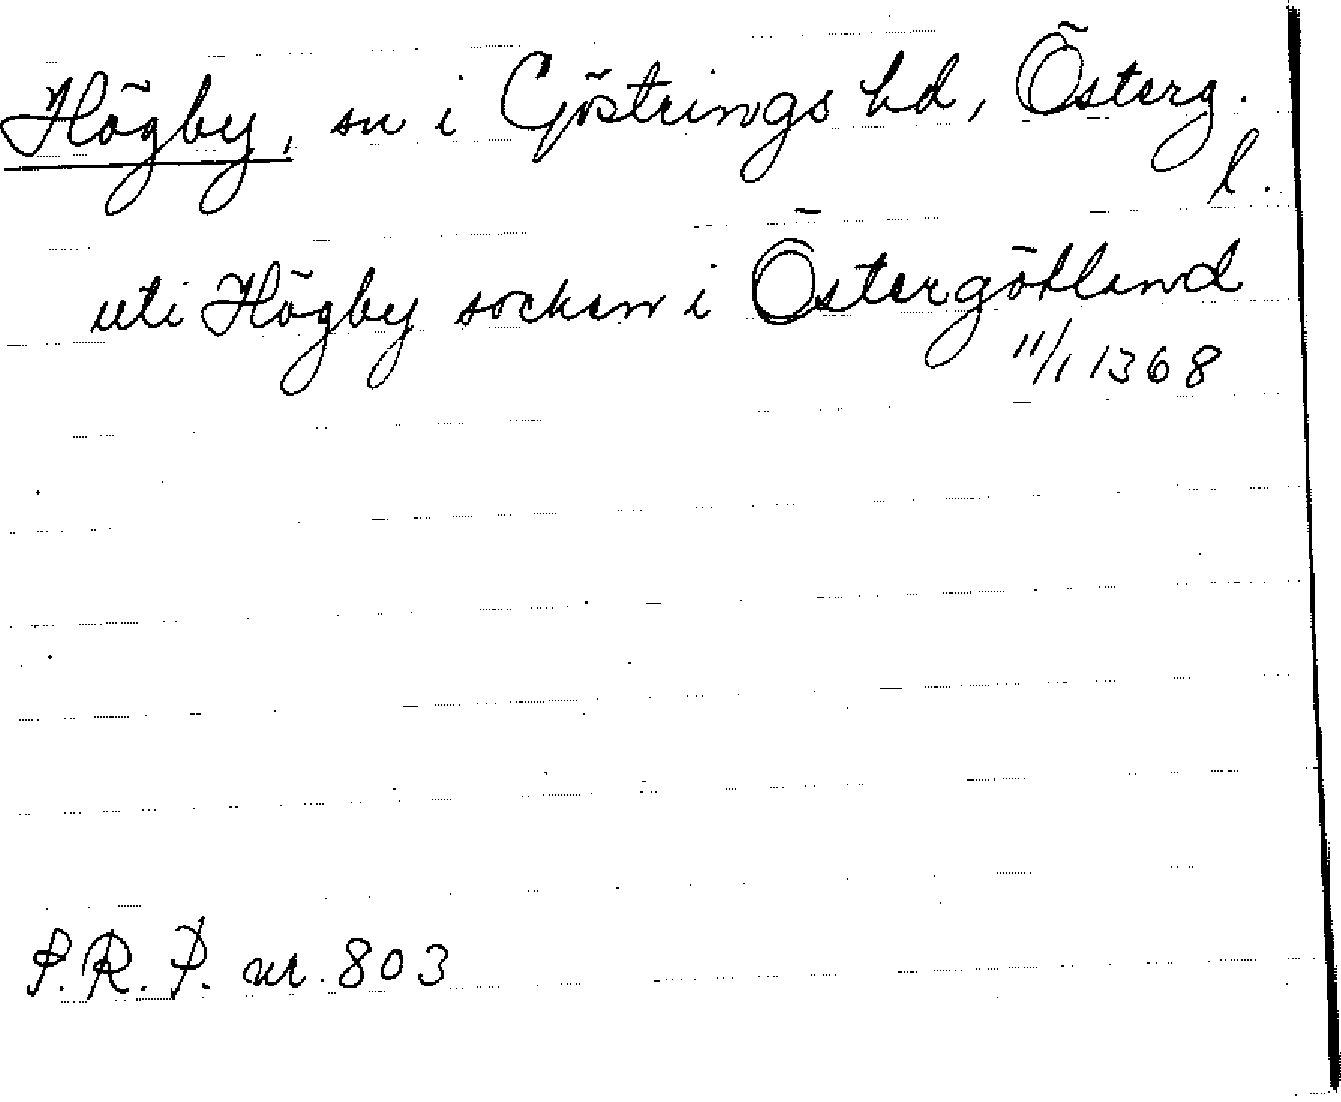 Högby, sn i Göstrings hd, Österg.
l.
uti Högby socken i Östergötland
11/1 1368
P.R.P. nr. 803